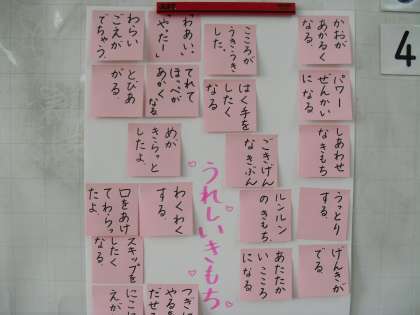 かおが
あかるく
なる
こころが
うきうき
した。
「わあい」
「やったー」
わらい
ごえが
でちゃう。
パワー
ぜんかい
になる
はく手を
したく
なる
てれて
ほっぺが
あかく
なる
とびあ
がる
しあわせ
なきもち
ごきげん
なきぶん
めが
きらっと
したよ。
うっとり
する。
ルンルン
のきもち。
うれしいきもち
わくわく
する。
口をあけ
てわらっ
たよ
げんきが
でる
あたたか
いこころ
になる
スキップを
したく
なる。
つぎに
やる
だせる
にこに
えが
4